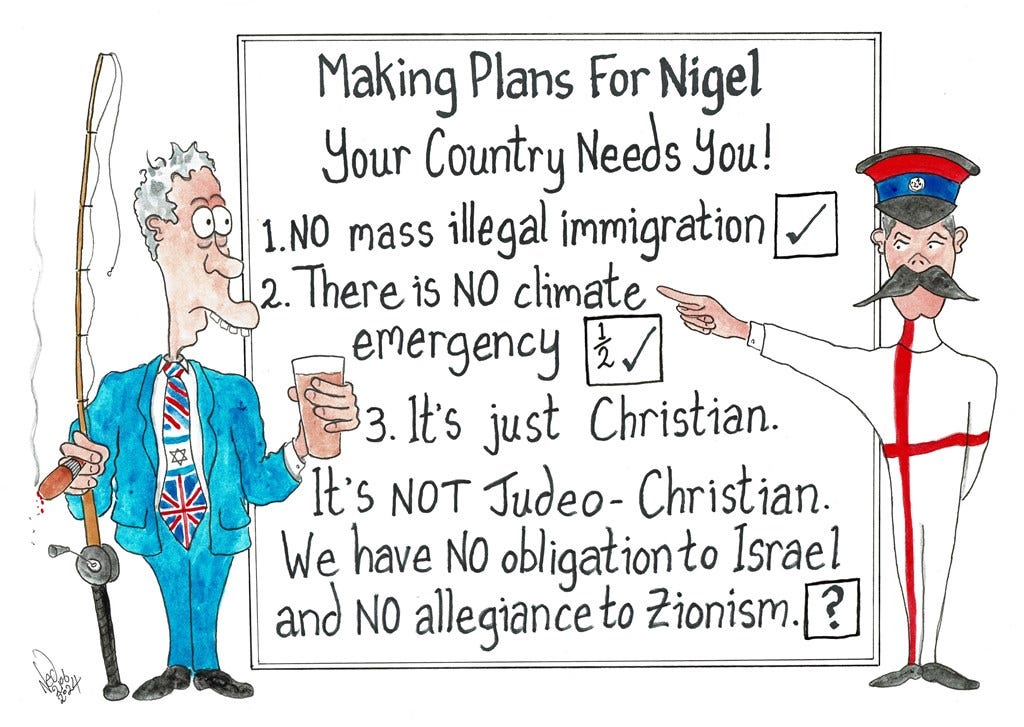 Making Plans For Nigel
Your Country Needs You!
1. NO mass illegal immigration ✓
2. There is NO climate
emergency ½ ✓
3. It's just Christian.
It's NOT Judeo-Christian.
We have NO obligation to Israel
and NO allegiance to Zionism. ?
2024